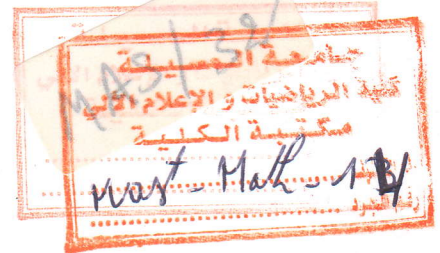 MAS/32
جامعة المسيلة
كلية الرياضيات و الإعلام الآلي
مكتبة الكلية
Mast - Math - 1
رقم الجرد